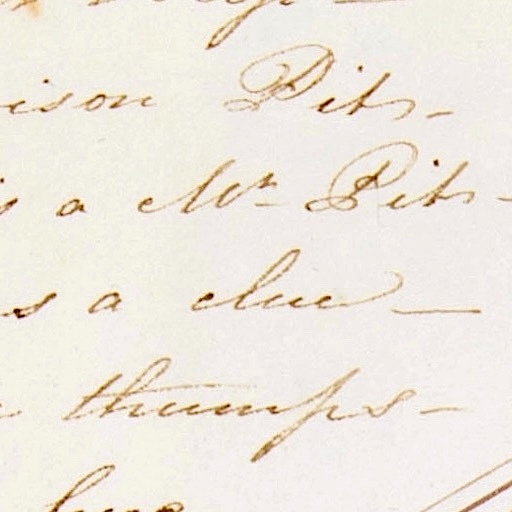 ison Pits-
a Mr Pits-
s a clue —
thumps-